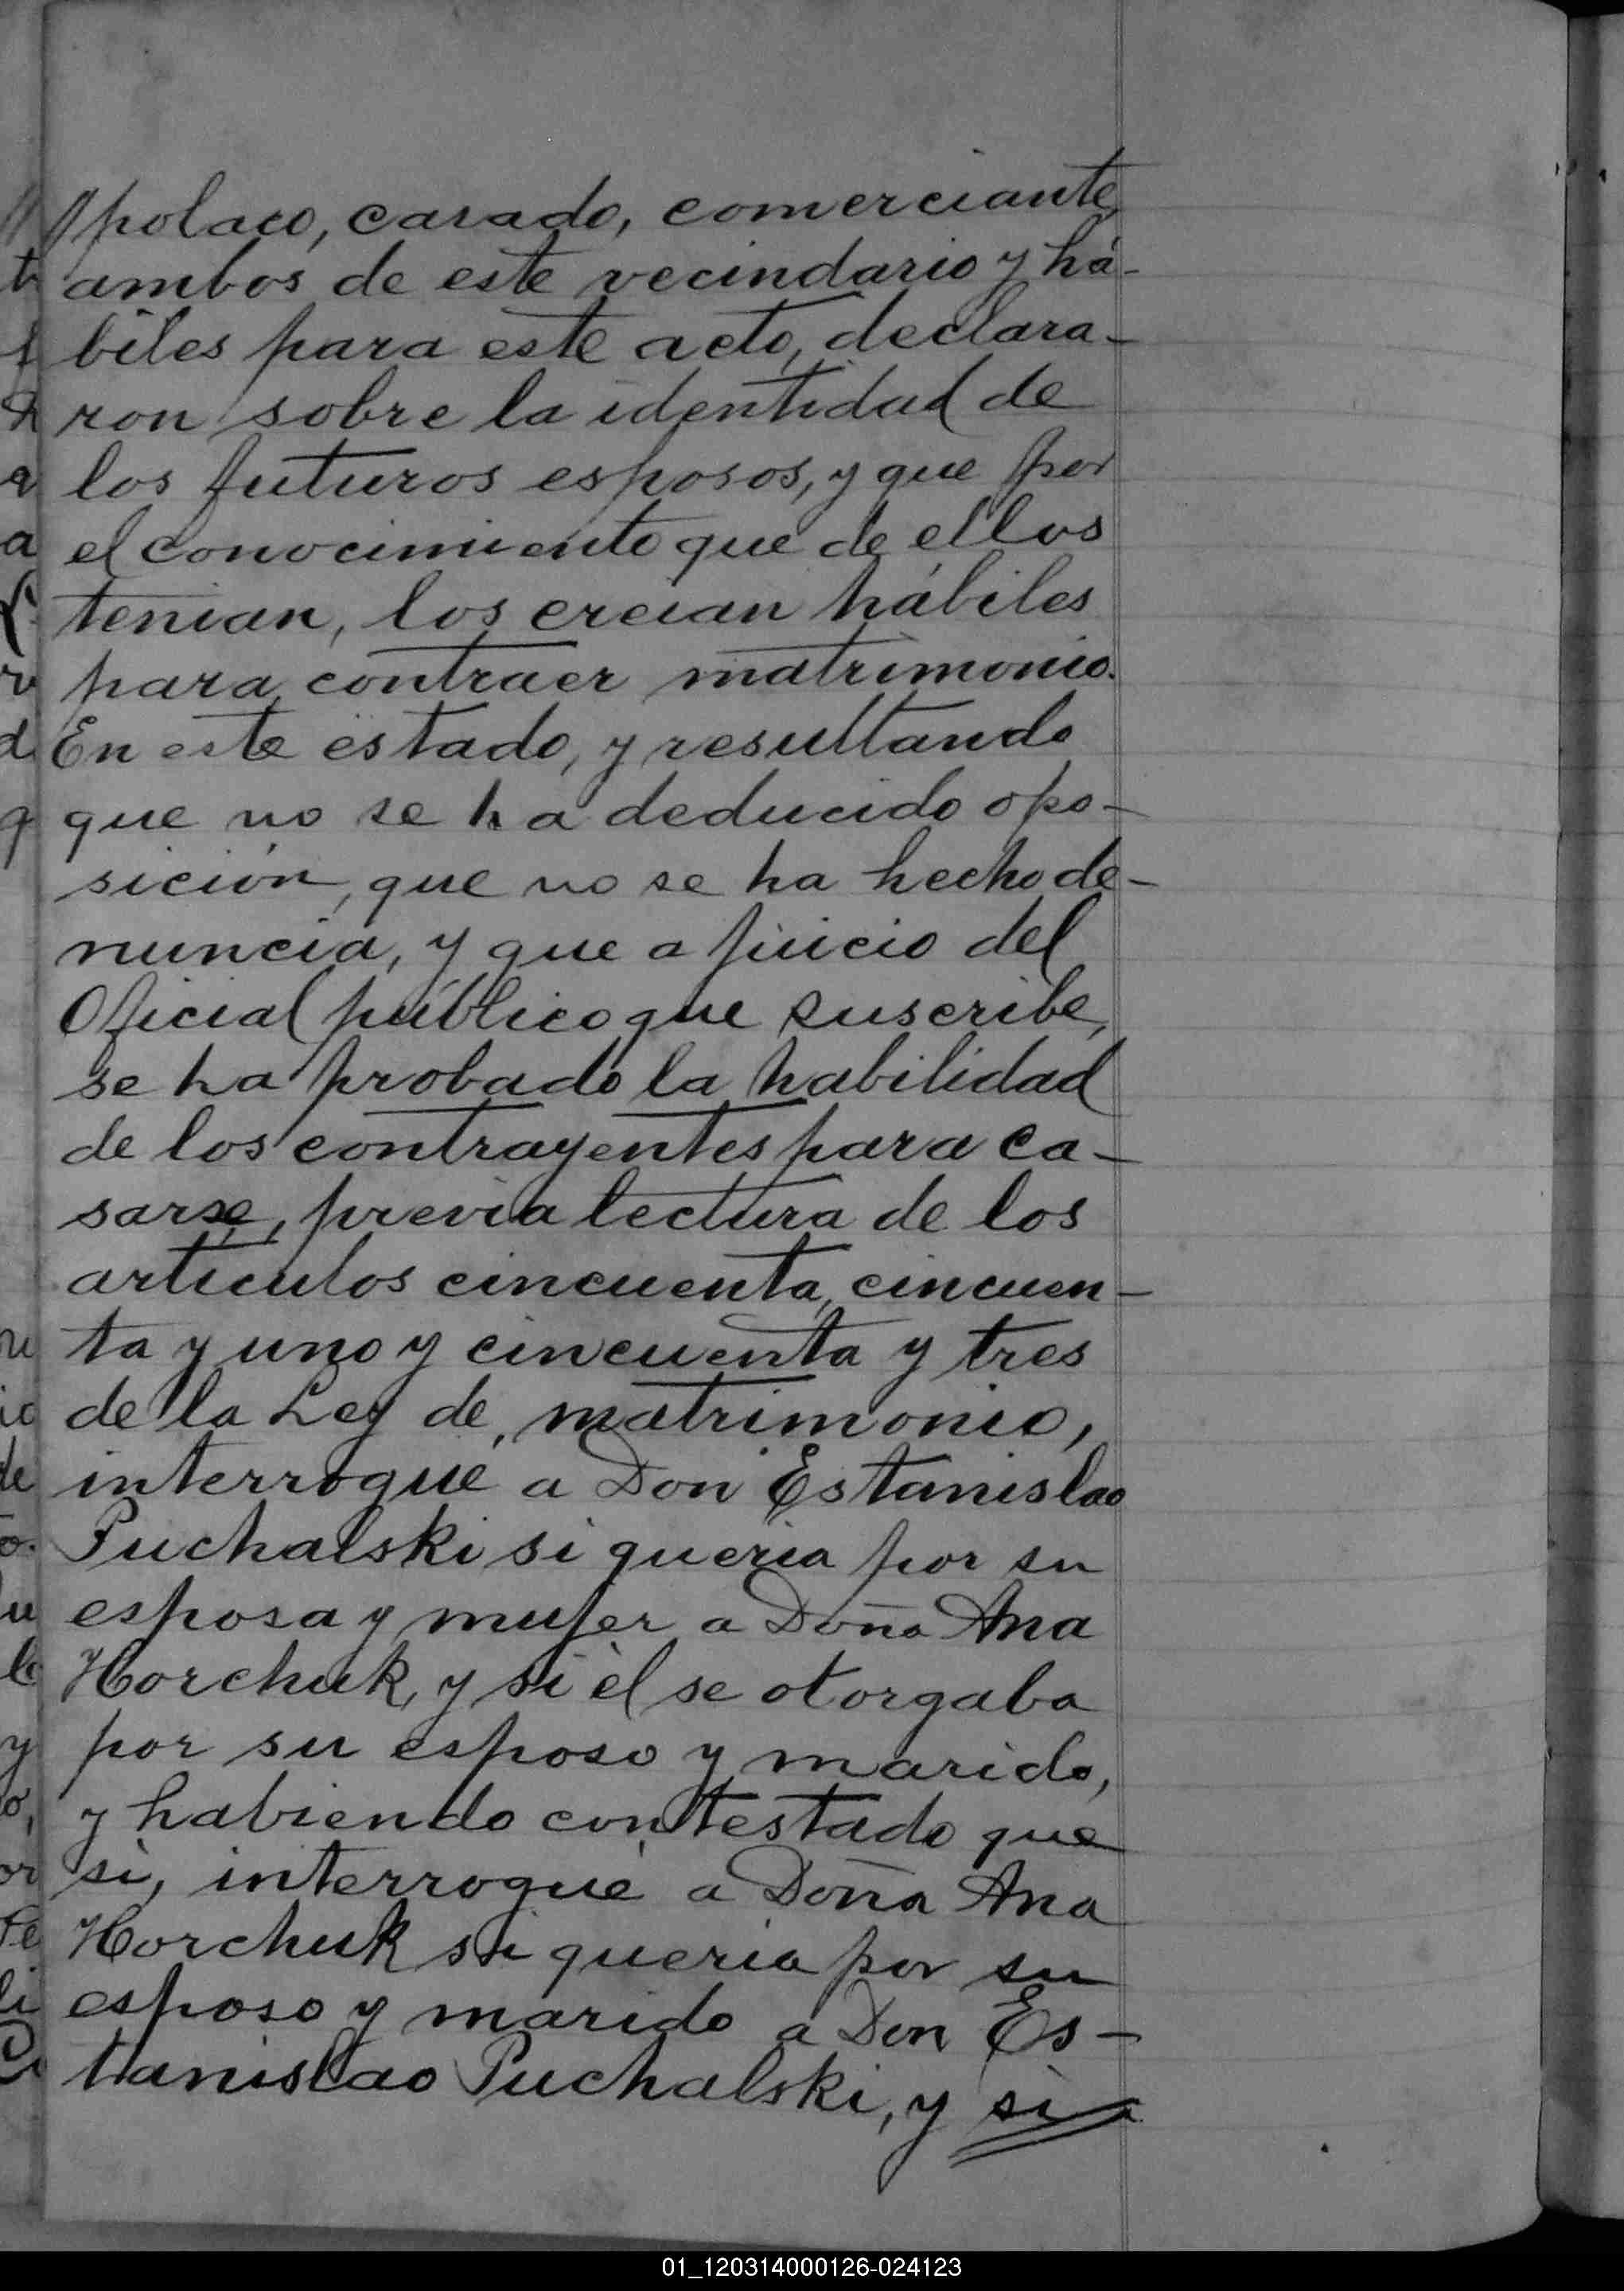 polaco, casado, comerciante,
ambos de este vecindario y há-
biles para este acto, declara-
ron sobre la identidad de
los futuros esposos, y que por
el conocimiento que de ellos
tenian, los creian hábiles
para contraer matrimonio.
En este estado, y resultando
que no se ha deducido opo-
sición, que no se ha hecho de-
nuncia, y que a juicio del
Oficial público que suscribe,
se ha probado la habilidad
de los contrayentes para ca-
sarse, previa lectura de los
artículos cincuenta, cincuen-
ta y uno y cincuenta y tres
de la Ley de matrimonio,
interrogué a Don Estanislao
Puchalski si queria por su
esposa y mujer a Doña Ana
Horchuk, y si él se otorgaba
por su esposo y marido,
y habiendo contestado que
si, interrogué a Doña Ana
Horchuk si queria por su
esposo y marido a Don Es-
tanislao Puchalski, y si
01_120314000126-024123